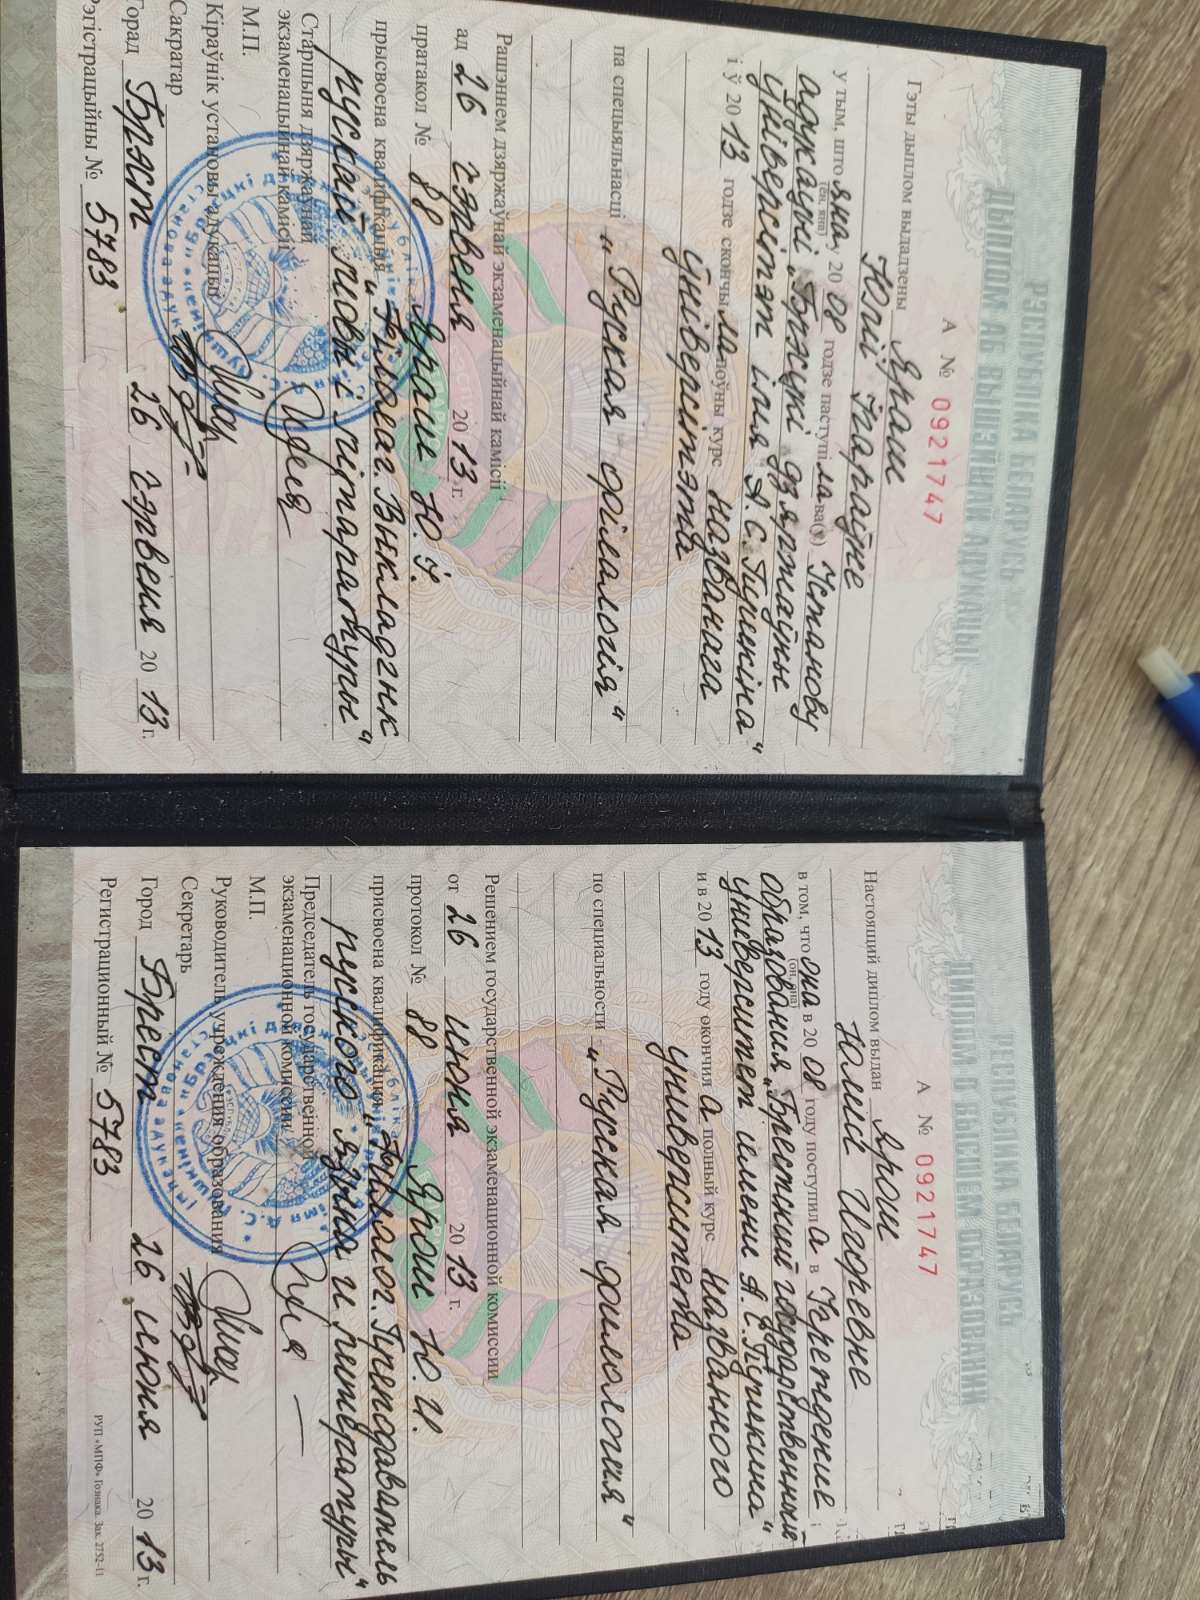 РЭСПУБЛІКА БЕЛАРУСЬ
ДЫПЛОМ АБ ВЫШЭЙШАЙ АДУКАЦЫІ
А № 0921747
Гэты дыплом выдадзены Ярош
Юліі Ігараўне
у тым, што яна у 20 08 годзе паступіла ва(ў) Установу
(ён, яна)
адукацыі „Брэсцкі дзяржаўны
ўніверсітэт імя А.С. Пушкіна"
і ў 20 13 годзе скончыла поўны курс названага
ўніверсітэта
па спецыяльнасці „Руская філалогія"
Рашэннем дзяржаўнай экзаменацыйнай камісіі
ад 26 чэрвеня 20 13 г.
пратакол № 88 Ярош Ю. І.
прысвоена кваліфікацыя „Філолаг. Выкладчык
рускай мовы і літаратуры"
Старшыня дзяржаўнай
экзаменацыйнай камісіі
М.П.
Кіраўнік установы адукацыі
Сакратар
Горад Брэст 26 чэрвеня 20 13 г.
Рэгістрацыйны № 5783
РЕСПУБЛИКА БЕЛАРУСЬ
ДИПЛОМ О ВЫСШЕМ ОБРАЗОВАНИИ
А № 0921747
Настоящий диплом выдан Ярош
Юлии Игоревне
в том, что она в 20 08 году поступила в Учреждение
(он, она)
образования „Брестский государственный
университет имени А.С. Пушкина"
и в 20 13 году окончила полный курс названного
университета
по специальности „Русская филология"
Решением государственной экзаменационной комиссии
от 26 июня 20 13 г.
протокол № 88 Ярош Ю. И.
присвоена квалификация „Филолог. Преподаватель
русского языка и литературы"
Председатель государственной
экзаменационной комиссии
М.П.
Руководитель учреждения образования
Секретарь
Город Брест 26 июня 20 13 г.
Регистрационный № 5783
РУП «МПФ» Гознака. Зак. 2752-11